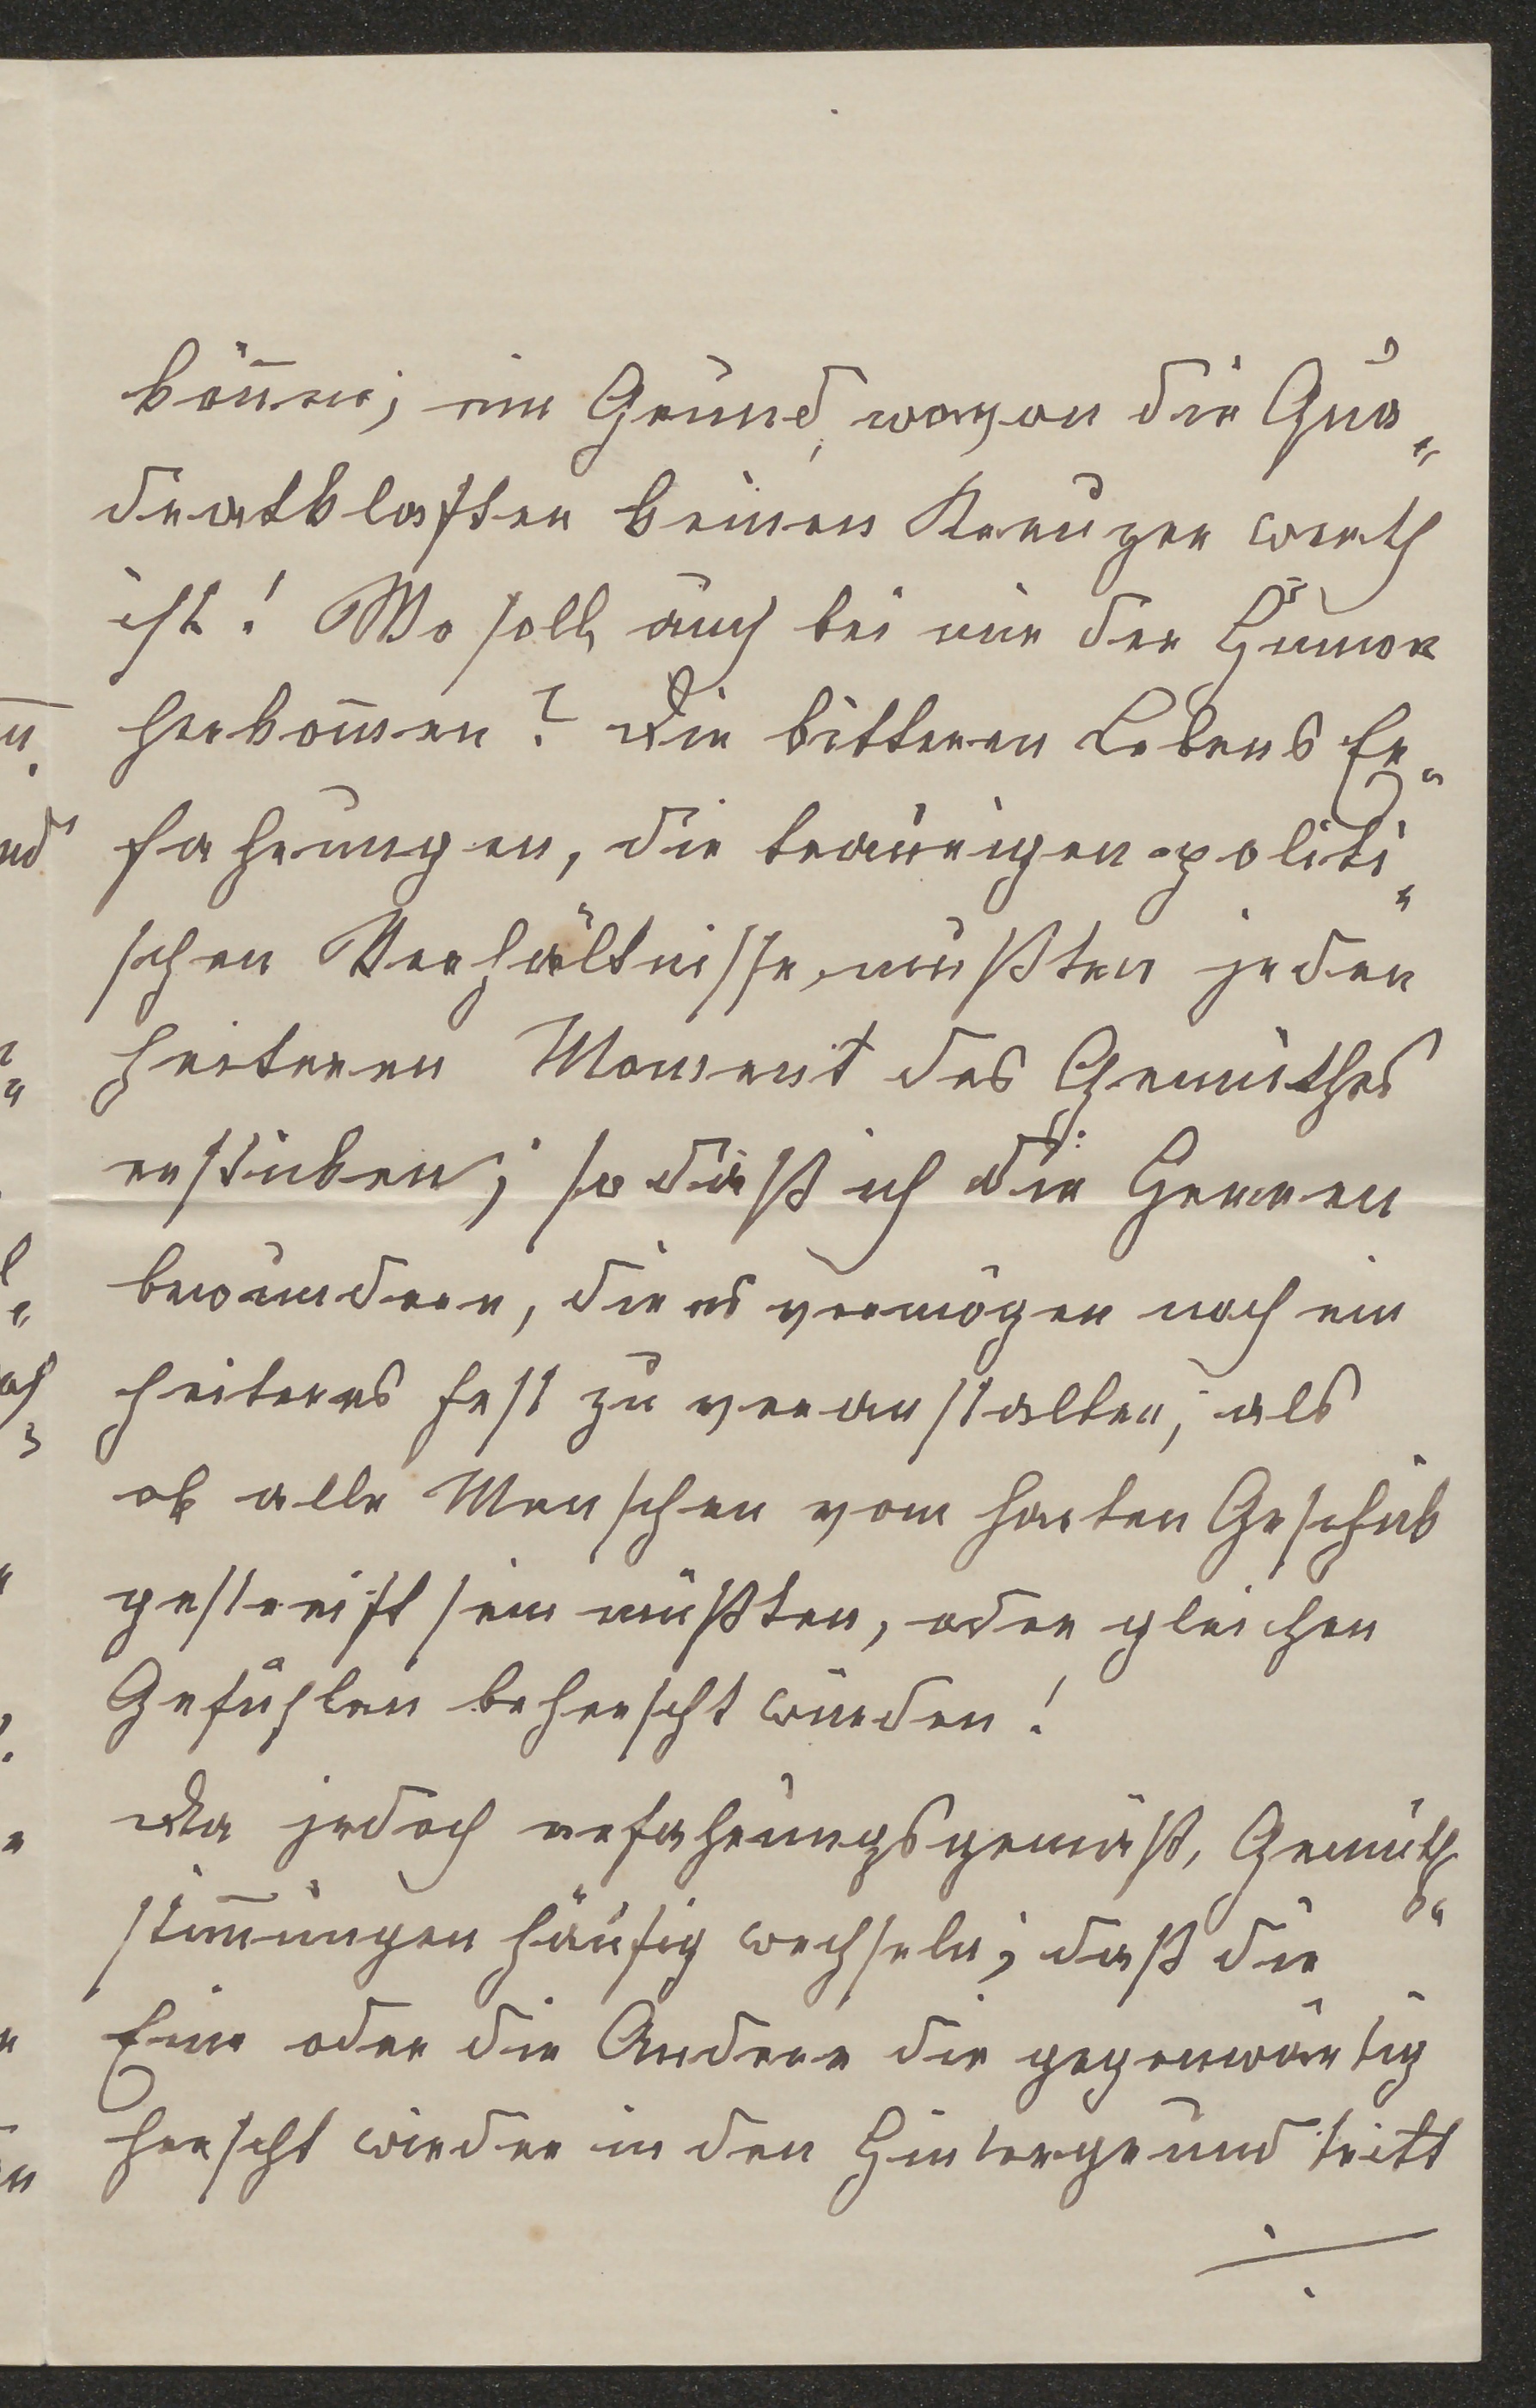 können; ein Grund, wovon die Qua„
dratklafter keinen Kreuzer werth
ist! Wo soll auch bei mir der Humor
herkom̅en? Die bitteren Lebens Er„
fahrungen, die traurigen politi„
schen Verhältnisse, müßten jeden
heiteren Moment des Gemüthes
ersticken; so daß ich die Herren
bewundere, die es vermögen noch ein
heiteres Fest zu veranstalten; als
ob alle Menschen vom harten Geschick
gestreift sein müßten, oder gleichen
Gefühlen beherscht würden!
Da jedoch erfahrungsgemäß, Gemüths„
stim̅ungen häufig wechseln; daß die
Eine oder die Andere die gegenwärtig
herscht wieder in den Hintergrund tritt